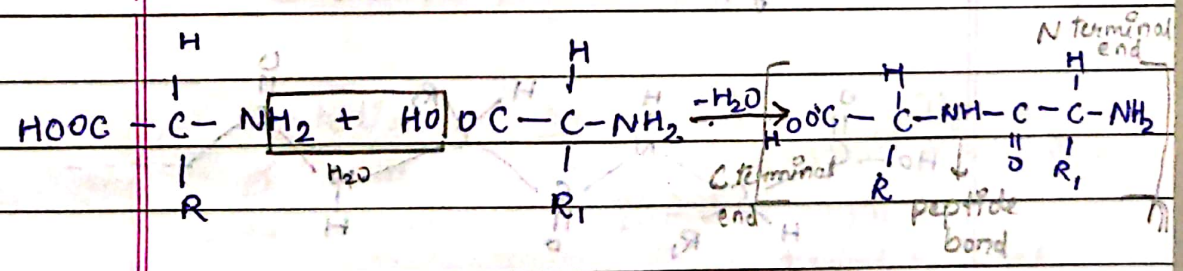 N terminal
end
H H H H
HOOC – C – NH₂ + HOOC – C – NH₂ –H₂O → HOOC – C – NH – C – C – NH₂
H₂O O
R R₁ R R₁
C terminal
end
peptide
bond
n